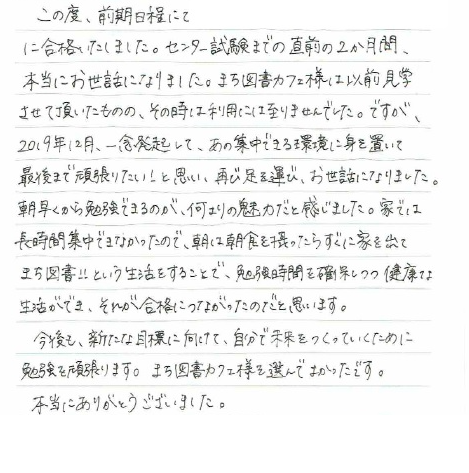 この度、前期日程にて
に合格いたしました。センター試験までの直前の2か月間、
本当にお世話になりました。まち図書カフェ様は以前見学
させて頂いたものの、その時は利用には至りませんでした。ですが、
2019年12月、一念発起して、あの集中できる環境に身を置いて
最後まで頑張りたい!と思い、再び足を運び、お世話になりました。
朝早くから勉強できるのが、何よりの魅力だと感じました。家では
長時間集中できなかったので、朝は朝食を摂ったらすぐに家を出て
まち図書!!という生活をすることで、勉強時間を確保しつつ健康な
生活ができ、それが合格につながったのだと思います。
今後も、新たな目標に向けて、自分で未来をつくっていくために
勉強を頑張ります。まち図書カフェ様を選んでよかったです。
本当にありがとうございました。